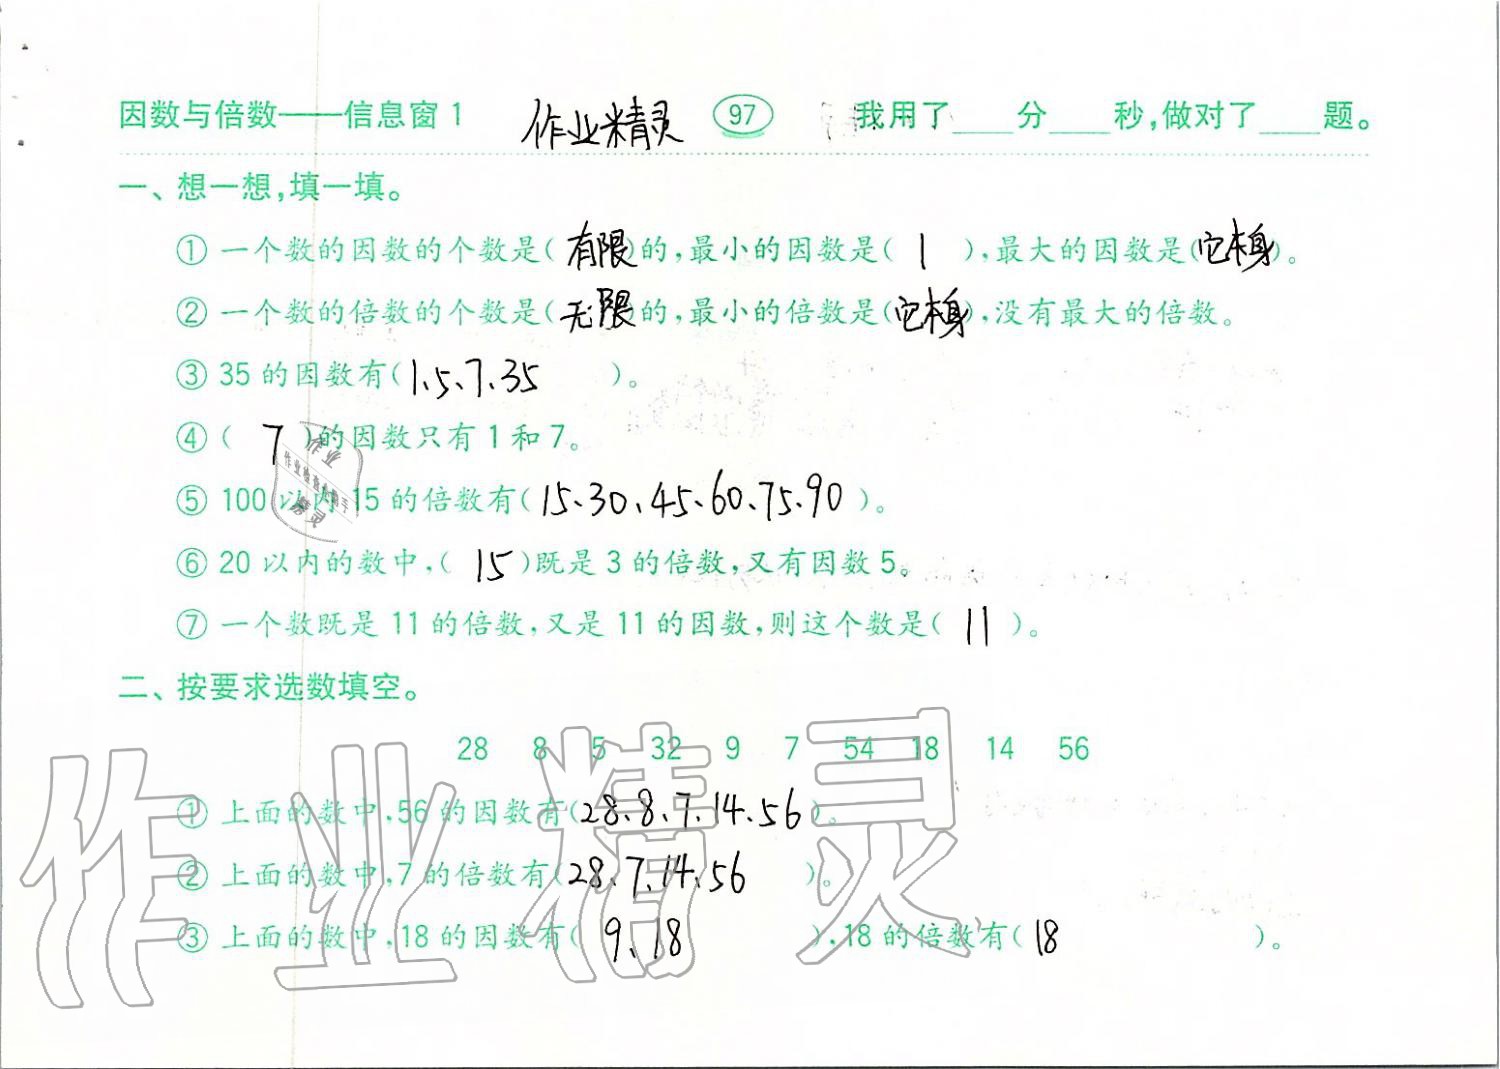 因数与倍数——信息窗1 作业精灵 97 我用了____分____秒,做对了____题。
一、想一想,填一填。
① 一个数的因数的个数是(有限)的,最小的因数是( 1 ),最大的因数是(它本身)。
② 一个数的倍数的个数是(无限)的,最小的倍数是(它本身),没有最大的倍数。
③ 35的因数有(1、5、7、35 )。
④ ( 7 )的因数只有1和7。
⑤ 100以内15的倍数有(15、30、45、60、75、90 )。
⑥ 20以内的数中,( 15 )既是3的倍数,又有因数5。
⑦ 一个数既是11的倍数,又是11的因数,则这个数是( 11 )。
二、按要求选数填空。
28 8 5 32 9 7 54 18 14 56
① 上面的数中,56的因数有(28、8、7、14、56)。
② 上面的数中,7的倍数有(28、7、14、56 )。
③ 上面的数中,18的因数有( 9、18 ),18的倍数有( 18 )。
作业精灵